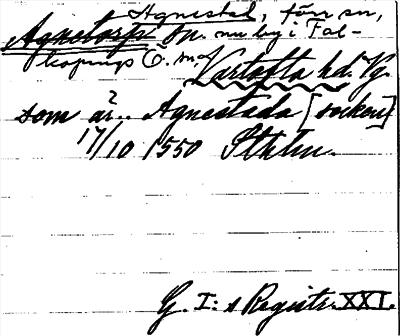 Agnestad, förr sn,
Agnetorps sn. nu by i Fal-
köpings Ö. sn, af
Vartofta hd. Vg.
?
som är.. Agnestada [socken]
17/10 1550 Sthlm.
G. I:s Registr. XXI.